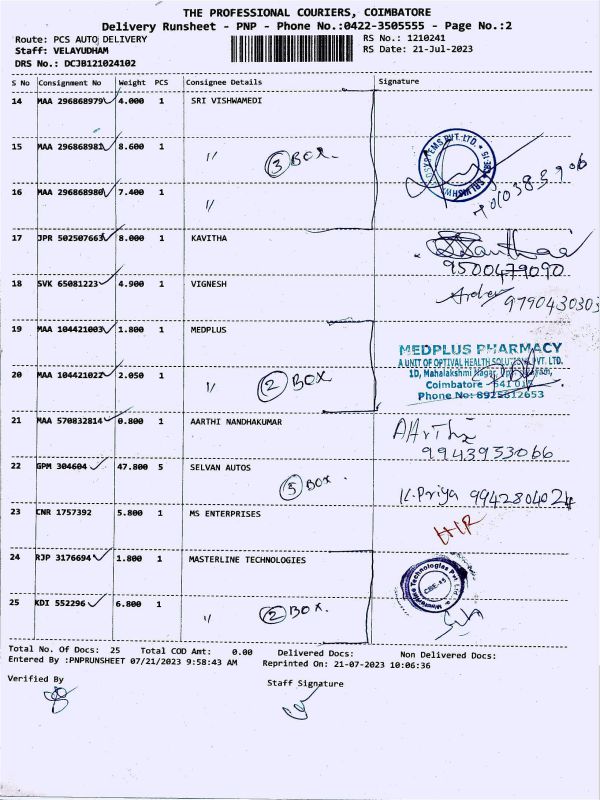 THE PROFESSIONAL COURIERS, COIMBATORE
Delivery Runsheet - PNP - Phone No.:0422-3505555 - Page No.:2
Route: PCS AUTO DELIVERY
RS No.: 1210241
Staff: VELAYUDHAM
RS Date: 21-Jul-2023
DRS No.: DCJB121024102
S No Consignment No Weight PCS Consignee Details Signature
14 MAA 296868979 4.000 1 SRI VISHWAMEDI
15 MAA 296868981 8.600 1 〃 ③ BOX.
16 MAA 296868980 7.400 1 〃
17 JPR 502507663 8.000 1 KAVITHA
9500479090
18 SVK 65081223 4.900 1 VIGNESH
9790430303
19 MAA 104421003 1.800 1 MEDPLUS
MEDPLUS PHARMACY
A UNIT OF OPTIVAL HEALTH SOLUTIONS PVT. LTD.
1D, Mahalakshmi Nagar,
20 MAA 104421022 2.050 1 〃 ② BOX
Coimbatore - 641 015
Phone No: 8925812653
21 MAA 570832814 0.800 1 AARTHI NANDHAKUMAR
AArThi
9943953066
22 GPM 304604 47.800 5 SELVAN AUTOS
⑤ BOX.
K.Priya 9942804024
23 CNR 1757392 5.800 1 MS ENTERPRISES
24 RJP 3176694 1.800 1 MASTERLINE TECHNOLOGIES
Masterline Technologies Pvt Ltd
CBE-15
25 KDI 552296 6.800 1 〃 ② BOX.
Total No. Of Docs: 25 Total COD Amt: 0.00 Delivered Docs: Non Delivered Docs:
Entered By :PNPRUNSHEET 07/21/2023 9:58:43 AM Reprinted On: 21-07-2023 10:06:36
Verified By
Staff Signature